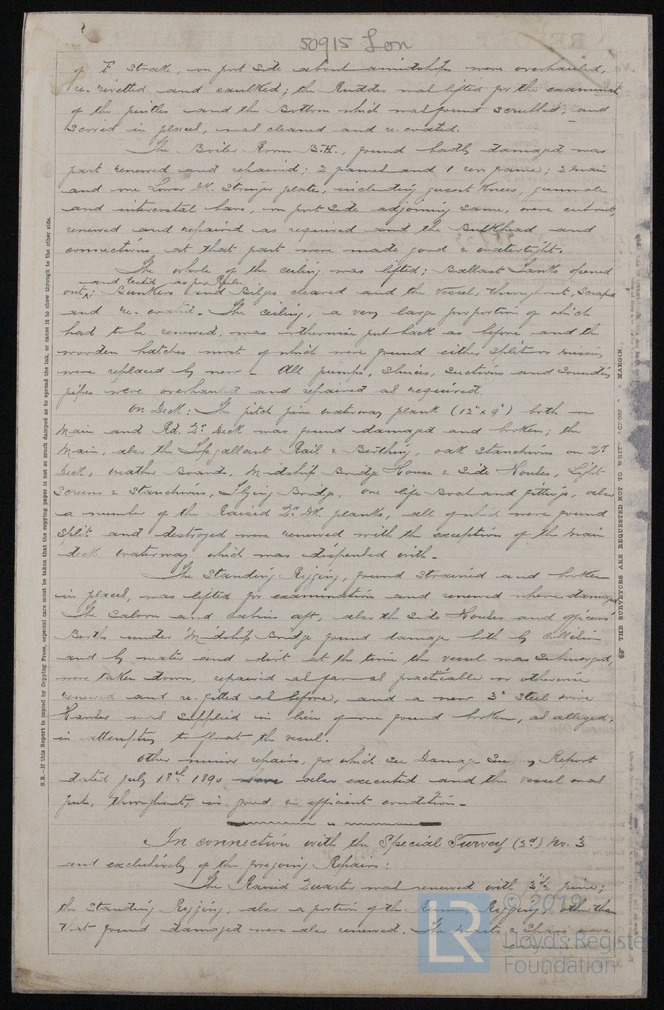 50915 Lon
of F Strake, on port side about amidships were overhauled,
re-rivetted and caulked; the Rudder was lifted for the examinat
of the pintles and the Bottom which was found scrubbed, and
scored in places, was cleaned and re-coated.
The Boiler Room B.H., found badly damaged was
part renewed and repaired; 2 frames and 1 rev frame; 2 main
and one Lower Dk. Stringer plates, including gusset knees, gunwale
and intercostal bars, on port side adjoining same, were cut out,
renewed and repaired as required and the Bulkhead and
connections at that part were made good & watertight.
The whole of the ceiling was lifted; Ballast Tanks opened
and tested as per Rule
out; Bunkers and Bilges cleared and the vessel, throughout, scraped
and re-coated. The ceiling, a very large proportion of which
had to be renewed, was otherwise put back as before and the
wooden hatches most of which were found either split or missing
were replaced by new. All pumps, sluices, suctions and sounding
pipes were overhauled and repaired as required.
On Deck: The pitch pine waterway plank (12" x 9") both on
Main and Rd. Qr. Deck was found damaged and broken; the
Main, also the Topgallant Rail & Berthing, oak stanchions on Qr
Deck, weather Boards, Midship Bridge House & Side Houses, Light
Screens & Stanchions, Flying Bridge, one life Boat and fittings, also
a number of the Raised Qr. Dk. planks, all of which were found
split and destroyed were renewed with the exception of the main
deck waterway which was dispensed with.
The Standing Rigging, found strained and broken
in places, was lifted for examination and renewed where damaged
The Saloon and cabins aft, also the Side Houses and officers
Berths under Midship Bridge found damaged both by collision
and by water and dirt at the time the vessel was submerged,
were taken down, repaired as far as practicable or otherwise
renewed and re-fitted as before, and a new 3" Steel wire
Hawser was supplied in lieu of one found broken, as alleged,
in attempting to float the vessel.
Other minor repairs, for which see Damage Survey Report
dated July 18th 1890 were also executed and the vessel was
put, throughout, in good & efficient condition.
In connection with the Special Survey (2d) No. 3
and exclusively of the foregoing Repairs:
The Raised Quarter was renewed with 3½ pine;
the Standing Rigging, also a portion of the Running Rigging, other than
that found damaged were also renewed. The masts & Chains were
N.B.—If this Report is copied by Copying Press, especial care must be taken that the copying paper is not so much damped as to spread the ink, or cause it to show through to the other side.
THE SURVEYORS ARE REQUESTED NOT TO WRITE MARGIN.
LR
© 2019
Lloyd's Register
Foundation